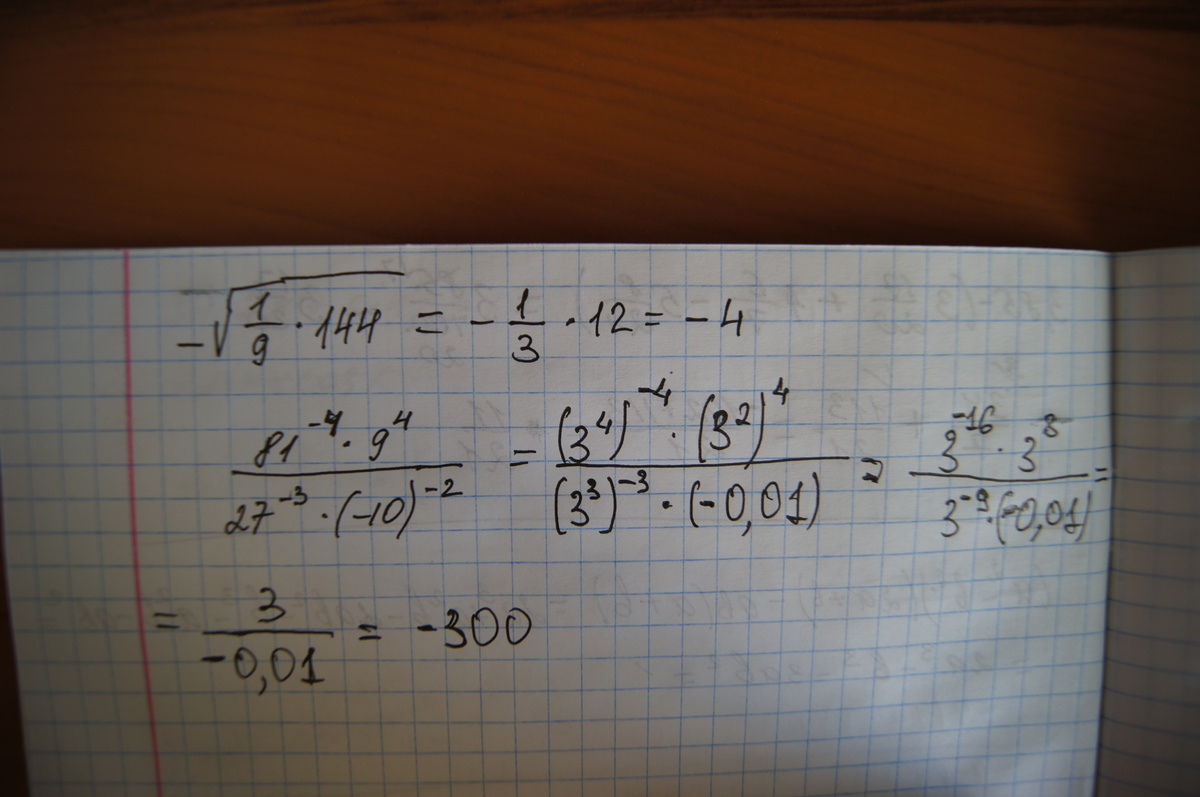 -√(1/9 · 144) = - 1/3 · 12 = - 4
(81^-4 · 9^4)/(27^-3 · (-10)^-2) = ((3^4)^-4 · (3^2)^4)/((3^3)^-3 · (-0,01)) = (3^-16 · 3^8)/(3^-9 · (-0,01)) =
= 3/(-0,01) = -300